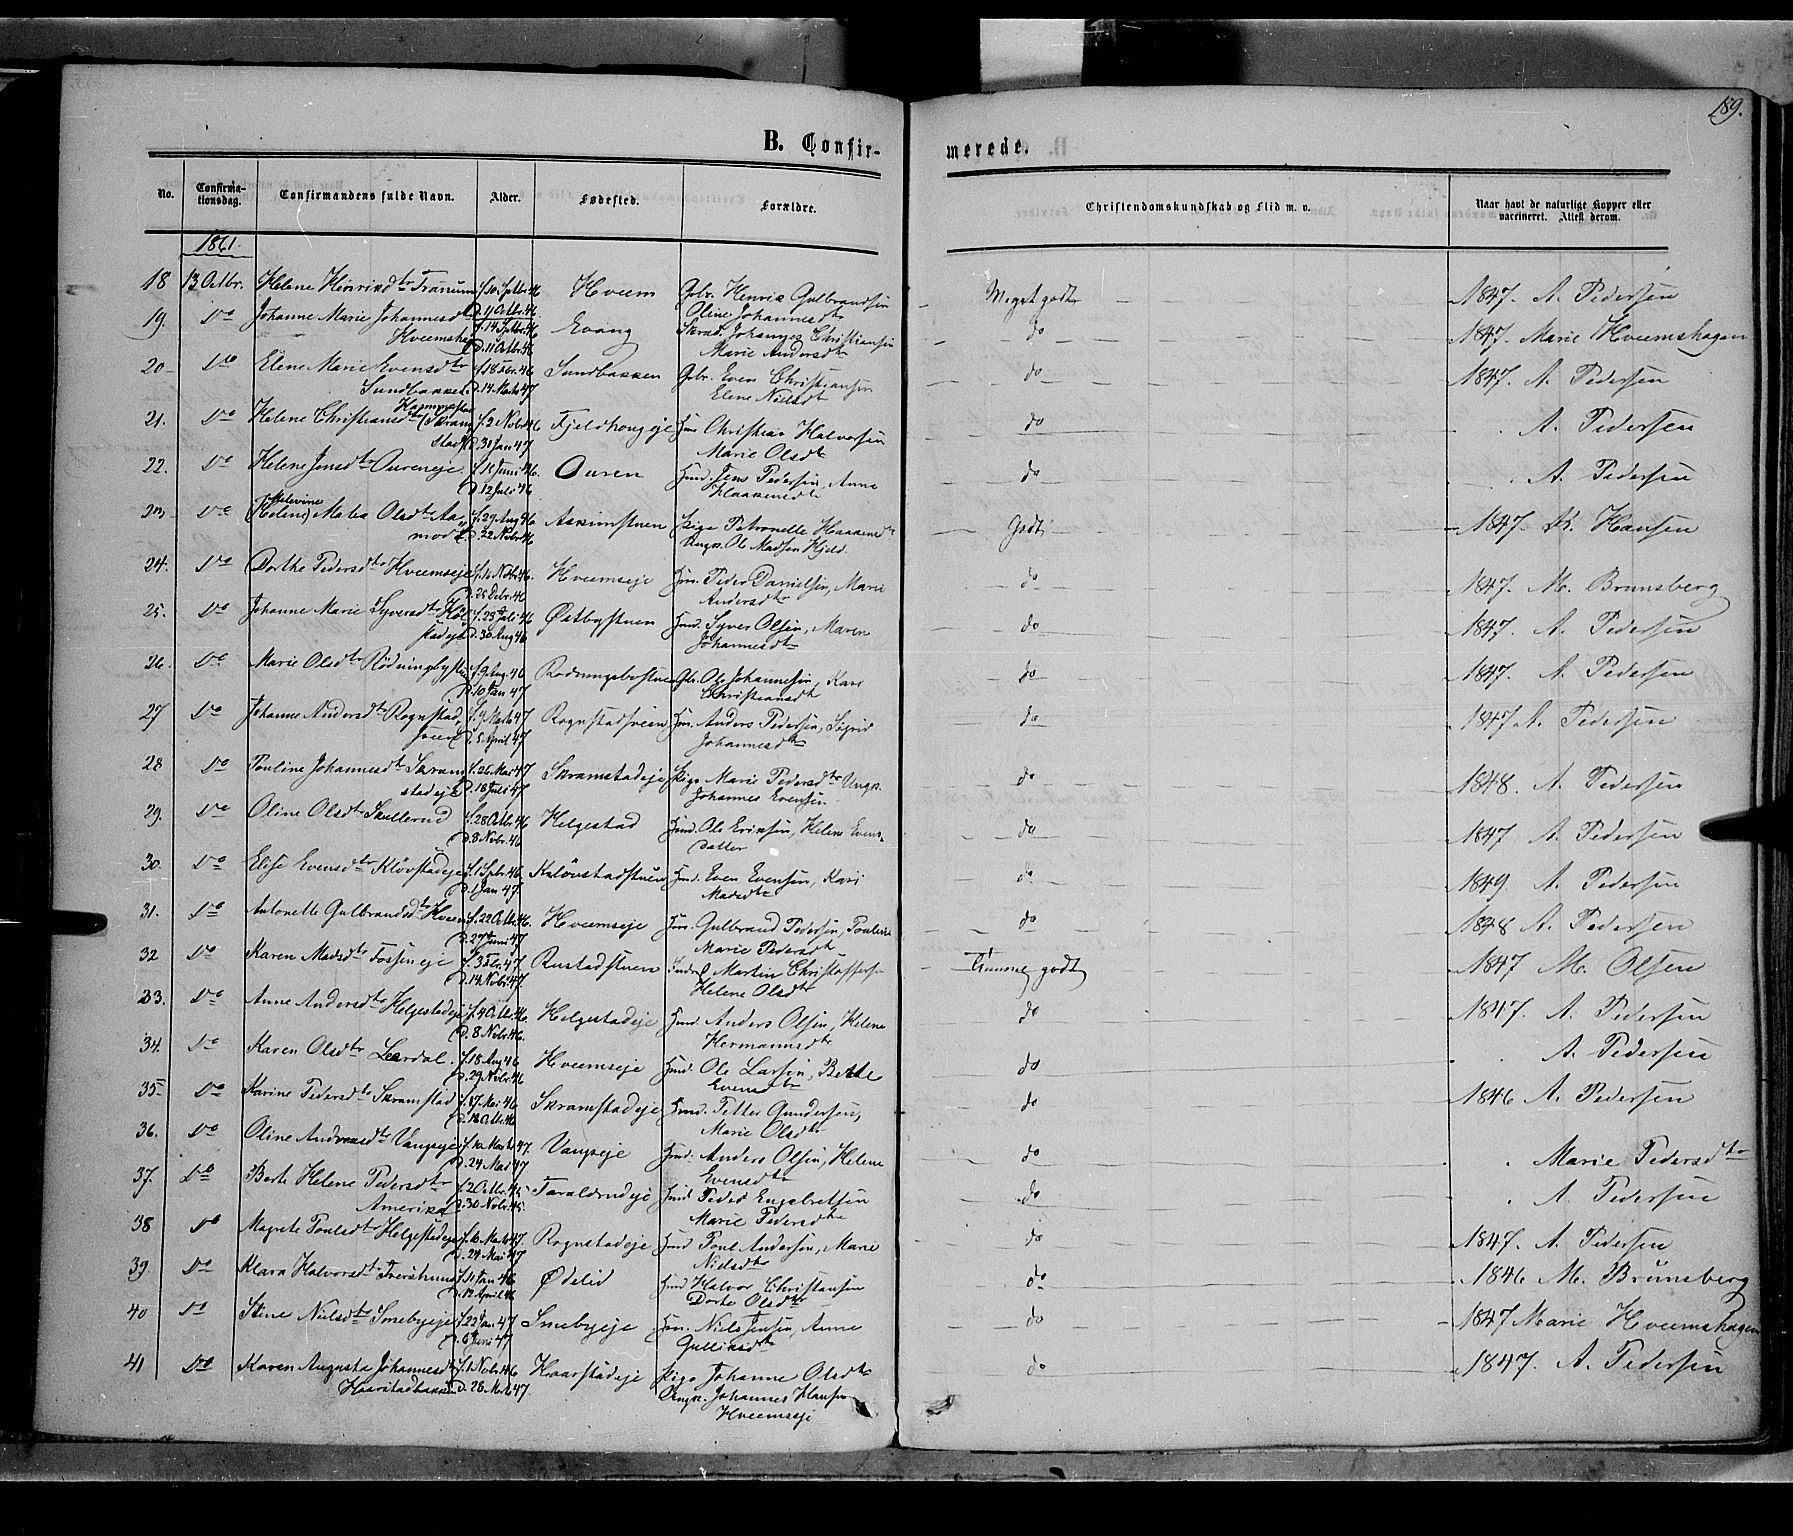 189.
B. Confir- merede.
No. Confirma-tionsdag. Confirmandens fulde Navn. Alder. Fødested. Forældre. Christendomskundskab og Flid m. v. Naar havt de naturlige Kopper eller vaccineret. Attest derom.
1861.
18 13 Octbr. Helene Henriksdtr Tranum f. 10 Sptbr. 46 D. 11 Octbr. 46 Hveem Gbr. Henrik Gulbrandsen Oline Johannesdtr Meget godt 1847. A. Pedersen
19. Do Johanne Marie Johannesdtr Hveemshag f. 14 Sptbr. 46 D. 11 Octbr. 46 Evang Skræd. Johannes Christiansen Marie Andersdtr do 1847. Marie Hveemshagen
20 Do Elene Marie Evensdtr Sundbakken D. 14 Marts 47 Sundbakken Gbr. Even Christiansen Elene Nielsdtr do 1847. A. Pedersen
21. Do Helene Christiansdtr (Skramstad) f. 2 Novbr 46 D. 31 Jan 47 Fjeldhougeje Christian Halvorsen Marie Olsdtr do A. Pedersen
22. Do Helene Jensdtr Oureneje f. 12 Juni 46. D. 12 Juli 46 Ouren Hmd. Jens Pedersen, Anne Haakensdtr do A. Pedersen
23 Do (Helene) Mathea Olsdtr Aamodt f. 29 Aug 46 D. 22 Novbr 46 Askimstuen Pige Petronelle Haakensdtr Ungk. Ole Madsen Hjeld. Godt 1847. K. Hansen
24. Do Dorthe Pedersdtr Hveemseje f. 16 Novbr 46. D. 26 Debr. 46 Hveemseje Hmd. Peder Danielsen, Marie Andersdtr do 1847. M. Brunsberg
25. Do Johanne Marie Syversdtr f. 28 Juli 46 D. 30 Aug 46 Østbystuen Hmd. Syver Olsen, Maren Johannesdtr do 1847. A. Pedersen
26. Do Marie Olsdtr Rødningsby f. 9 Aug. 46 D. 10 Jan 47 Rødningsbystuen Gbr. Ole Johannesen, Kari Christiansdtr do 1847. A. Pedersen
27 Do Johanne Andersdtr Rognstadsveen f. 4 Marts 47 D. 5 April 47 Rognstadsveen Hmd. Anders Pedersen, Sigrid Johannesdtr do 1847 A. Pedersen
28 Do Pouline Johannesdtr Skramstadeje f. 26 Mai 47 D. 18 Juli 47 Skramstadeje Pige Marie Pedersdtr Ungk. Johannes Evensen do 1848. A. Pedersen
29. Do Oline Olsdtr Skullerud f. 28 Octbr. 46 D. 8 Novbr. 46 Helgestad Hmd. Ole Eriksen, Helene Evensdatter do 1847. A. Pedersen
30. Do Elise Evensdtr Kløvstadeje f. 1 Sptbr. 46 D. 1 Jan 47. Kløvstadstuen Hmd. Even Evensen, Kari Madsdtr do 1849. A. Pedersen
31. Do Antonette Gulbrandsdtr Hveem f. 22 Octbr. 46. D. 27 Juni 47 Hveemseje Hmd. Gulbrand Pedersen, Pouline Marie Pedersdtr do 1848 A. Pedersen
32 Do Karen Madsdtr Fosseneje f. 3 Fbr. 47 D. 14 Novbr. 47 Rustadstuen Martin Christoffersen Helene Olsdtr Temmel. godt 1847 M. Olsen
33. Do Anne Andersdtr Helgestadeje f. 4 Octbr. 46. D. 8 Novbr. 46. Helgestadeje Hmd. Anders Olsen, Helene Hermannsdtr do 1847. A. Pedersen
34. Do Karen Olsdtr Leerdal. f. 18 Aug 46 D. 29 Novbr. 46 Hveemseje Hmd. Ole Larsen, Berthe Evensdtr do A. Pedersen
35 Do Karine Pedersdtr Skramstad f. 17 Mai 46 D. 18 Octbr. 46 Skramstadeje Hmd. Petter Gundersen, Marie Olsdtr do 1846 A. Pedersen
36. Do Oline Andersdtr Vangseje f. 10 Marts 47. D. 24 Mai 47 Vangseje Hmd. Anders Olsen, Helene Evensdtr do Marie Pedersdtr
37. Do Berte Helene Pedersdtr Amerika f. 2 Octbr. 45 D. 30 Novbr. 45. Taraldrudeje Hmd Peder Engebretsen Marie Pedersdtr do A. Pedersen
38 Do Magrete Poulsdtr Helgestadeje D. 24 Mai 47 Rognstadeje Hmd Poul Andersen, Marie Nielsdtr do 1847. A. Pedersen
39 Do Klara Halvorsdtr f. 11 Jan 46 D. 12 April 46 Ødelid Hmd Halvor Christiansen Dorte Olsdtr do 1846 M. Brunsberg
40 Do Stine Nielsdtr Smebyeje f. 22 Jan 47 D. 6 Juni 47 Smebyeje Hmd. Niels Jensen, Anne Gulliksdtr do 1847 Marie Hveemshagen
41 Do Karen Augusta Johannesdtr Haarstadbakken f. 1 Novbr. 46 D. 28 Marts 47. Haarstadeje Pige Johanne Olsdtr Ungk. Johannes Hansen Hveemseje do 1847. A. Pedersen